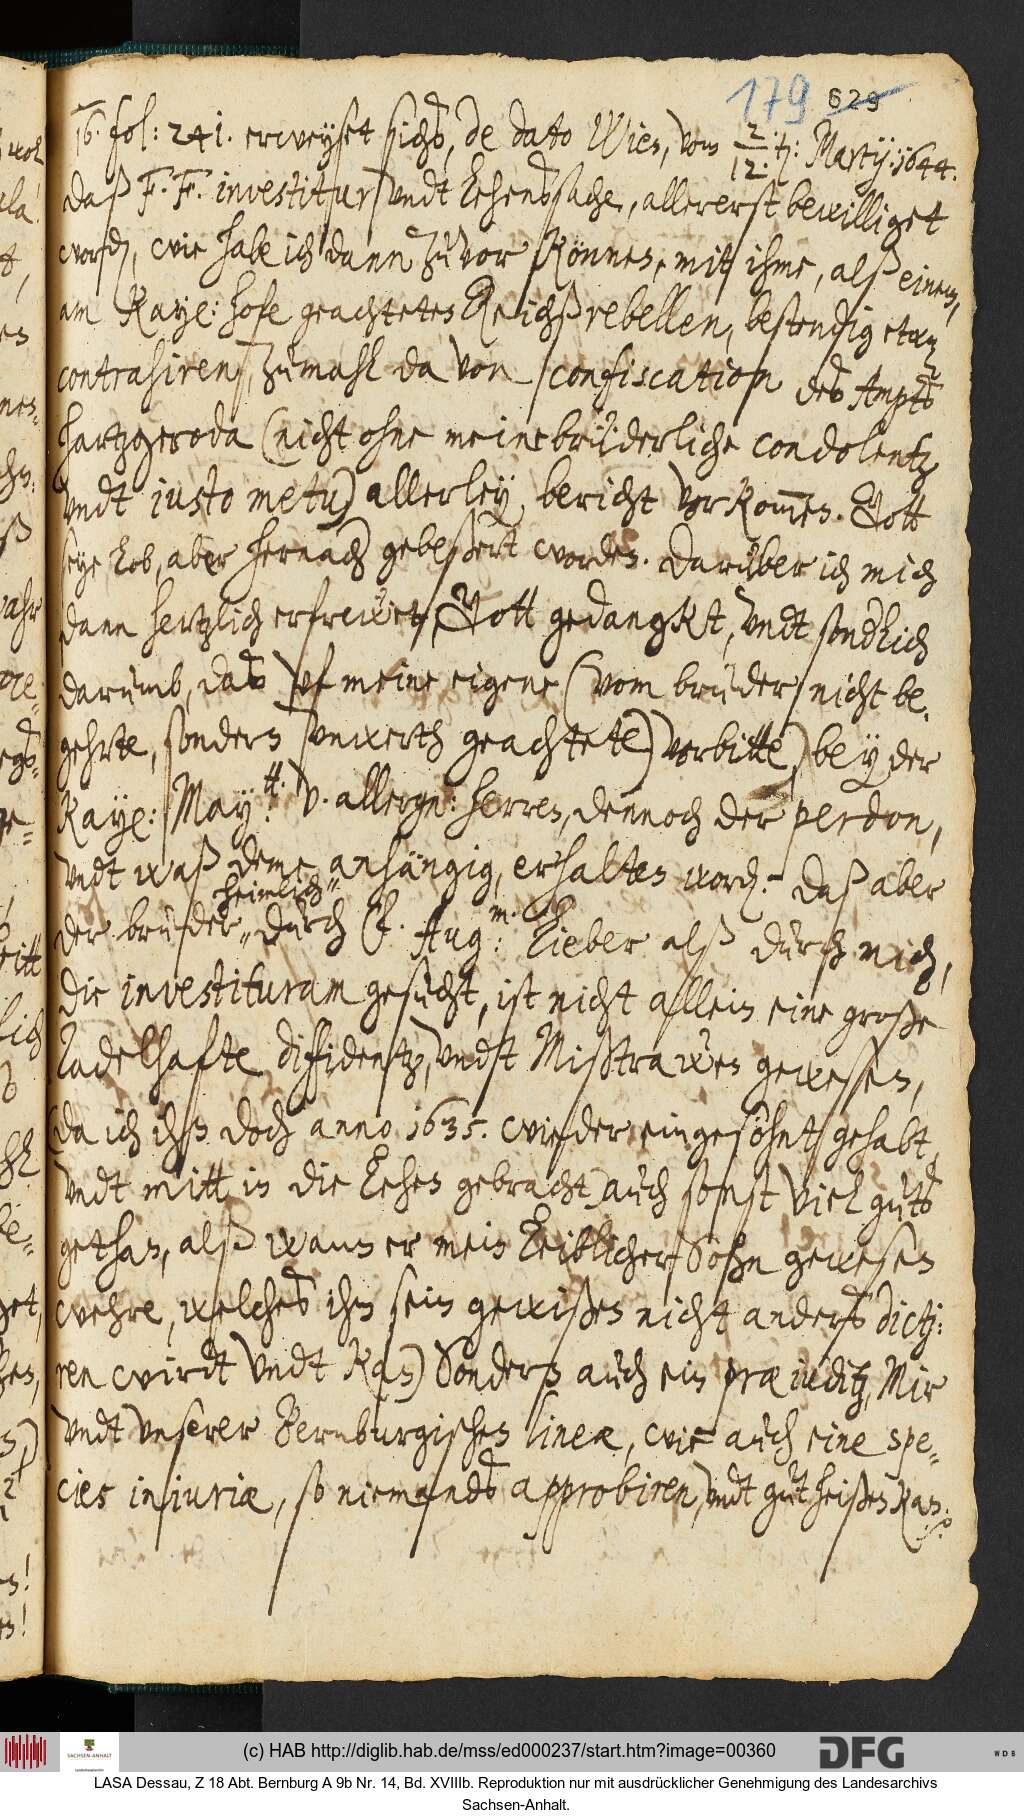 179 629
16. fol: 241. erweyset sichs, de dato Wien, vom 2./12. t: Martij. 1644.
daß F. F. investitur vndt Lehenssache, allererst bewilliget
word, wie habe ich dann zuvor können, mit ihme, alß einem,
am Kayß: hofe geachteten Reichßrebellen, bestendig etwaß
contrahiren, zumahl da von confiscation des Ampts
Hartzgeroda (nicht ohne meine brüderliche condolentz
vndt justo metu) allerley bericht vorkommen. Gott
seye lob, aber hernach gebeßert worden. Darüber ich mich
dann hertzlich erfrewet, Gott gedangkt, vndt sonderlich
darumb, das vf meine eigene (vom bruder nicht be-
gehrte, sondern vnwerth geachtete) vorbitte, bey der
Kayß: May:tt v. allergn: herren, dennoch der perdon,
vndt waß deme anhängig, erhalten word. Daß aber
heimlich
der bruder durch F. Aug:m lieber alß durch mich,
die investituram gesucht, ist nicht allein eine große
tadelhafte diffidentz, vndt Mißtrawen gewesen,
(da ich ihn doch anno 1635. wieder eingesöhnt gehabt,
vndt mitt in die Lehen gebracht, auch sonst viel guts
gethan, alß wann er mein leiblicher Sohn gewesen
wehre, welches ihm sein gewißen nicht anders dicti-
ren wirdt vndt kan) Sondern auch ein præjuditz, Mir
vndt vnserer Bernburgischen lineæ, wie auch eine spe-
cies injuriæ, so niemands approbiren, vndt gut heißen kan.
(c) HAB http://diglib.hab.de/mss/ed000237/start.htm?image=00360
SACHSEN-ANHALT
DFG
WDB
LASA Dessau, Z 18 Abt. Bernburg A 9b Nr. 14, Bd. XVIIIb. Reproduktion nur mit ausdrücklicher Genehmigung des Landesarchivs
Sachsen-Anhalt.